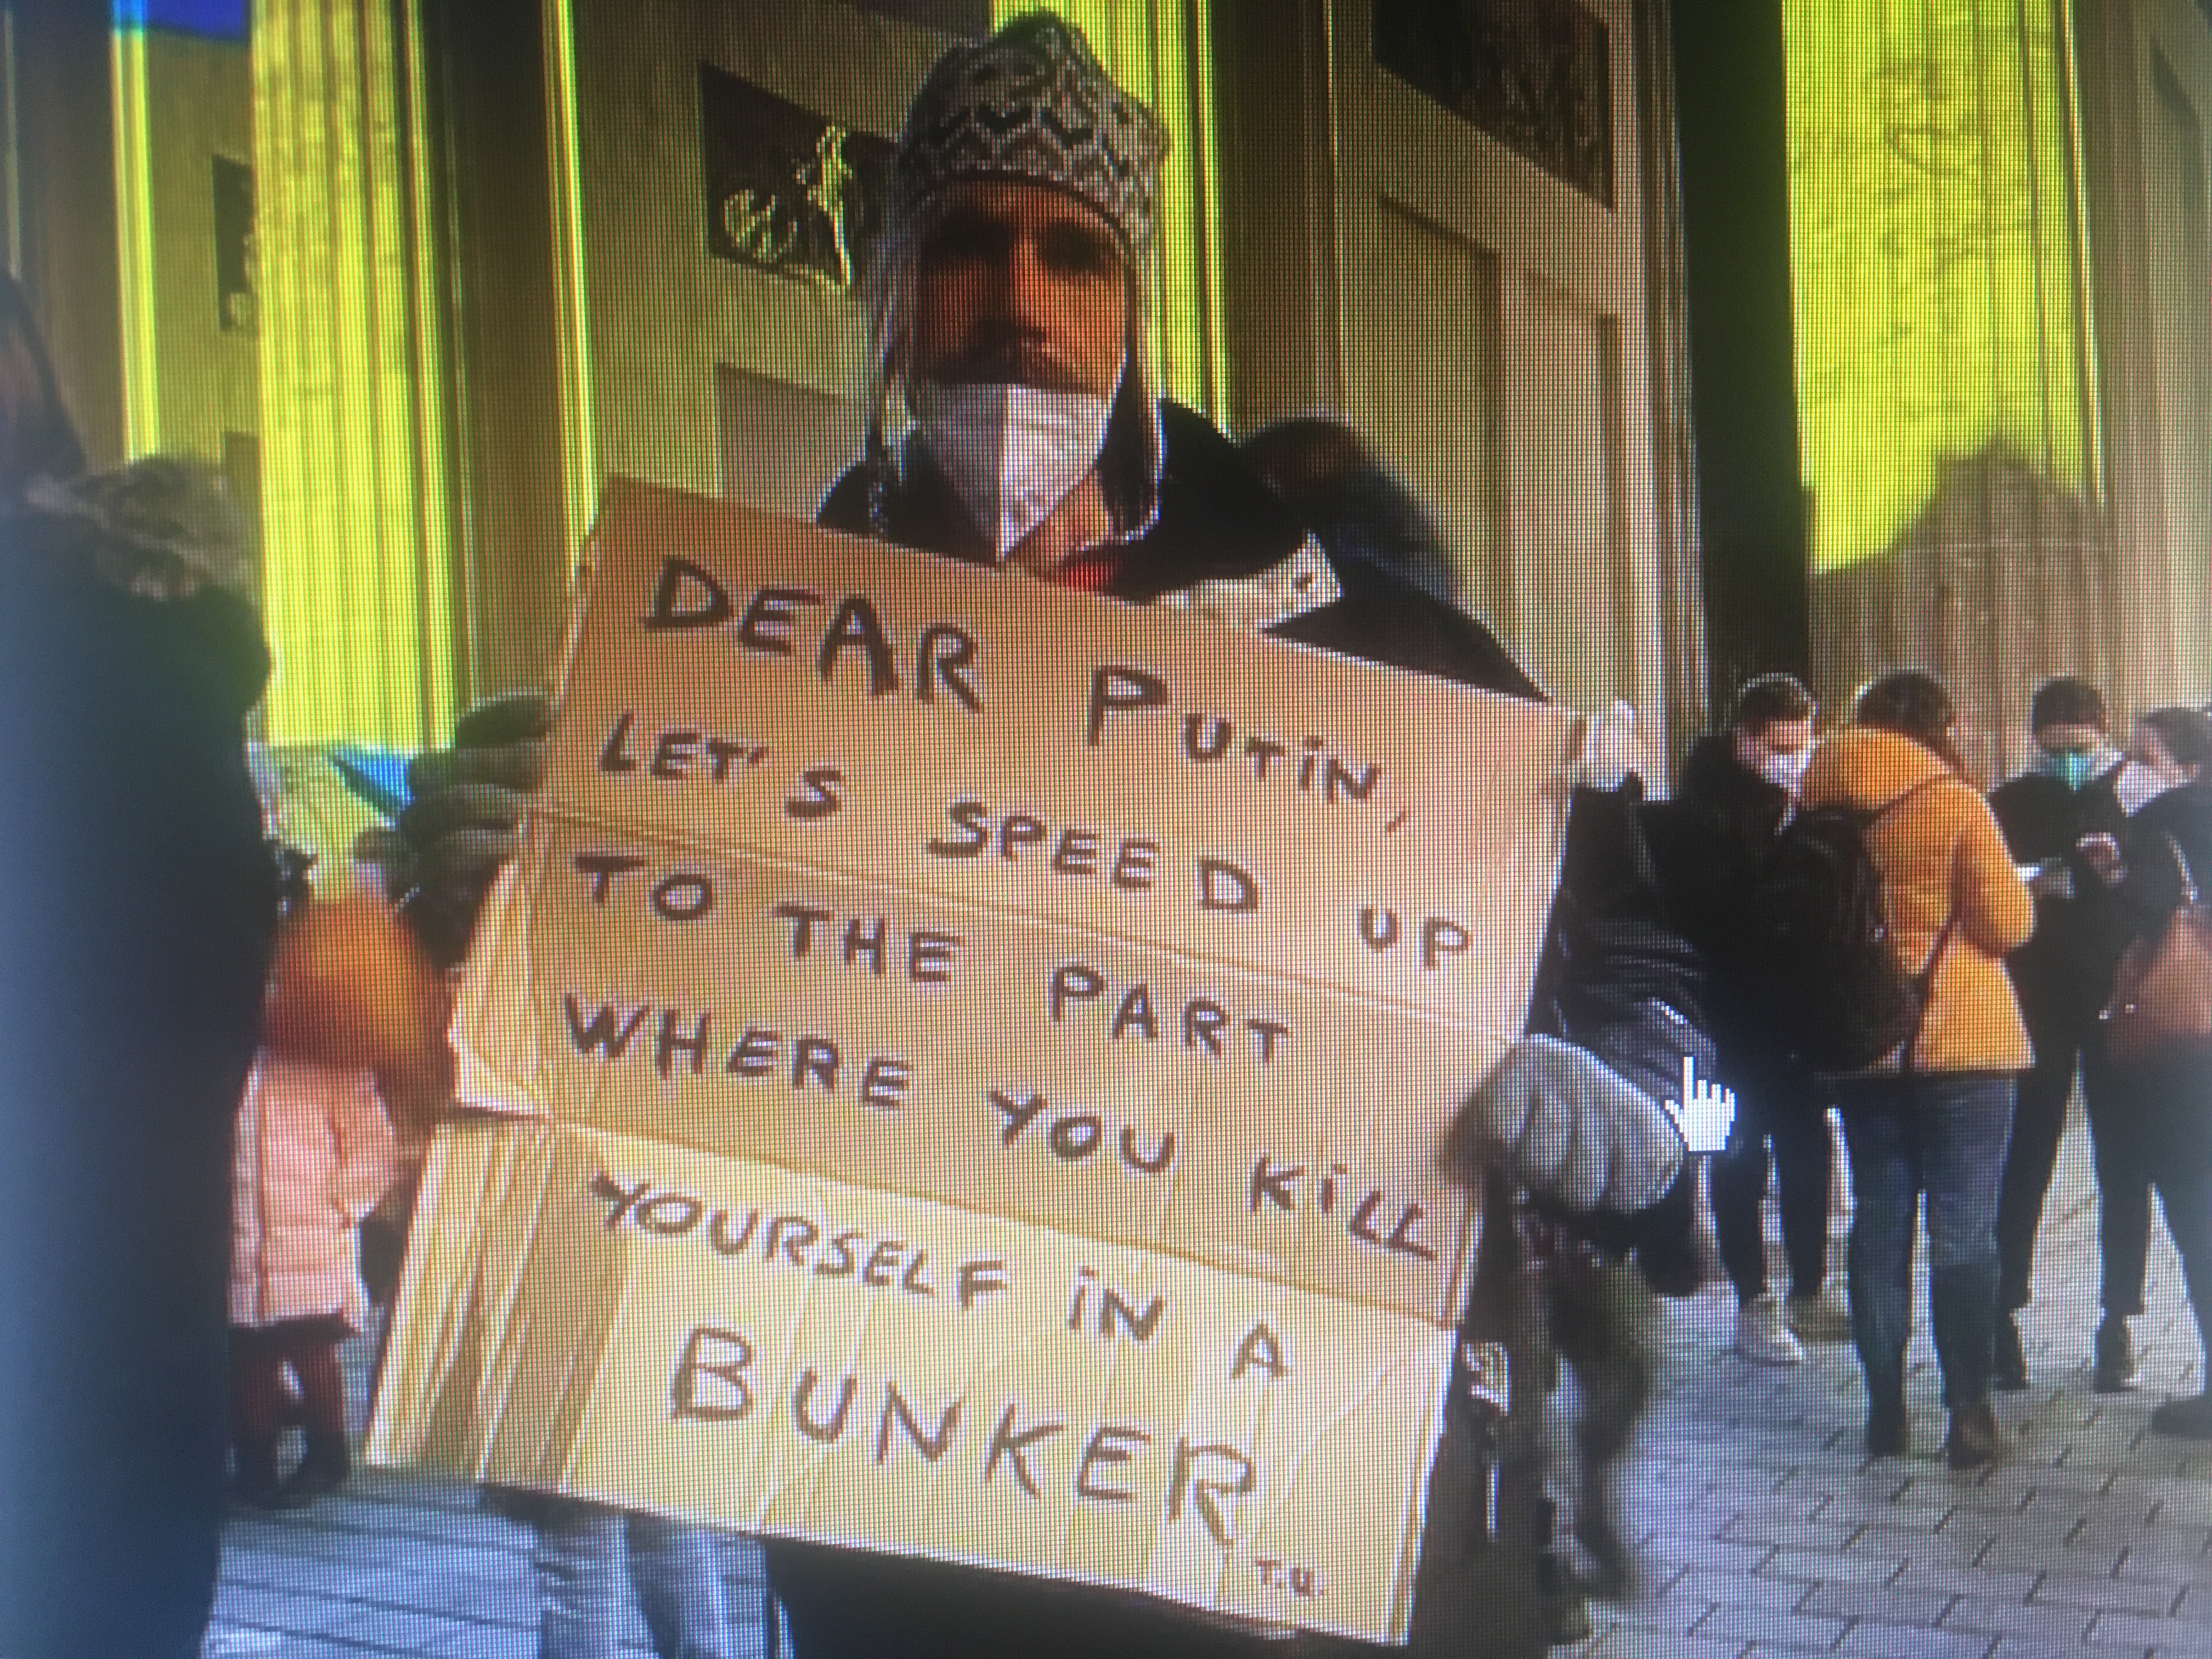 DEAR PUTIN,
LET'S SPEED UP
TO THE PART
WHERE YOU KILL
YOURSELF IN A
BUNKER
T.U.